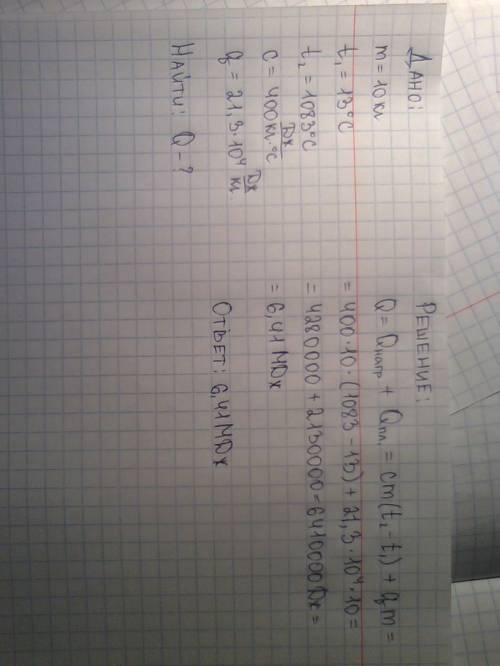 Дано:
m = 10 кг
t₁ = 13°C
t₂ = 1083°C
c = 400 Дж/кг·°C
q = 21,3·10⁴ Дж/кг
Найти: Q - ?
Решение:
Q = Qнагр + Qпл. = cm(t₂ - t₁) + qm =
= 400·10·(1083 - 13) + 21,3·10⁴·10 =
= 4280000 + 2130000 = 6410000 Дж =
= 6,41 МДж
Ответ: 6,41 МДж